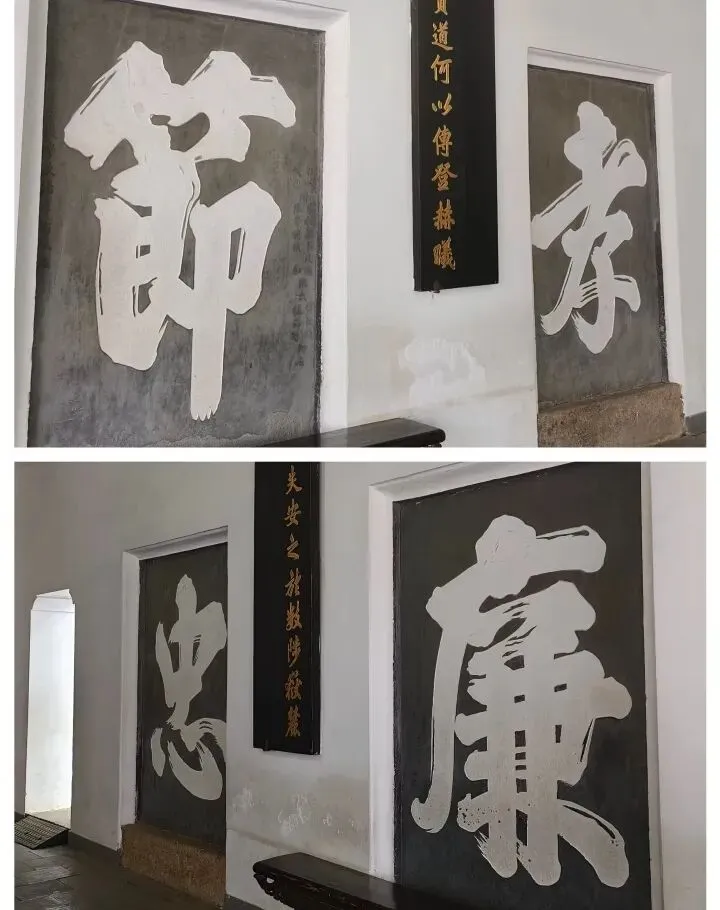 節
道何以傳登赫曦
孝
忠
失安之於數陟嶽麓
廉